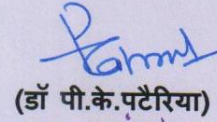 (डॉ पी.के.पटैरिया)